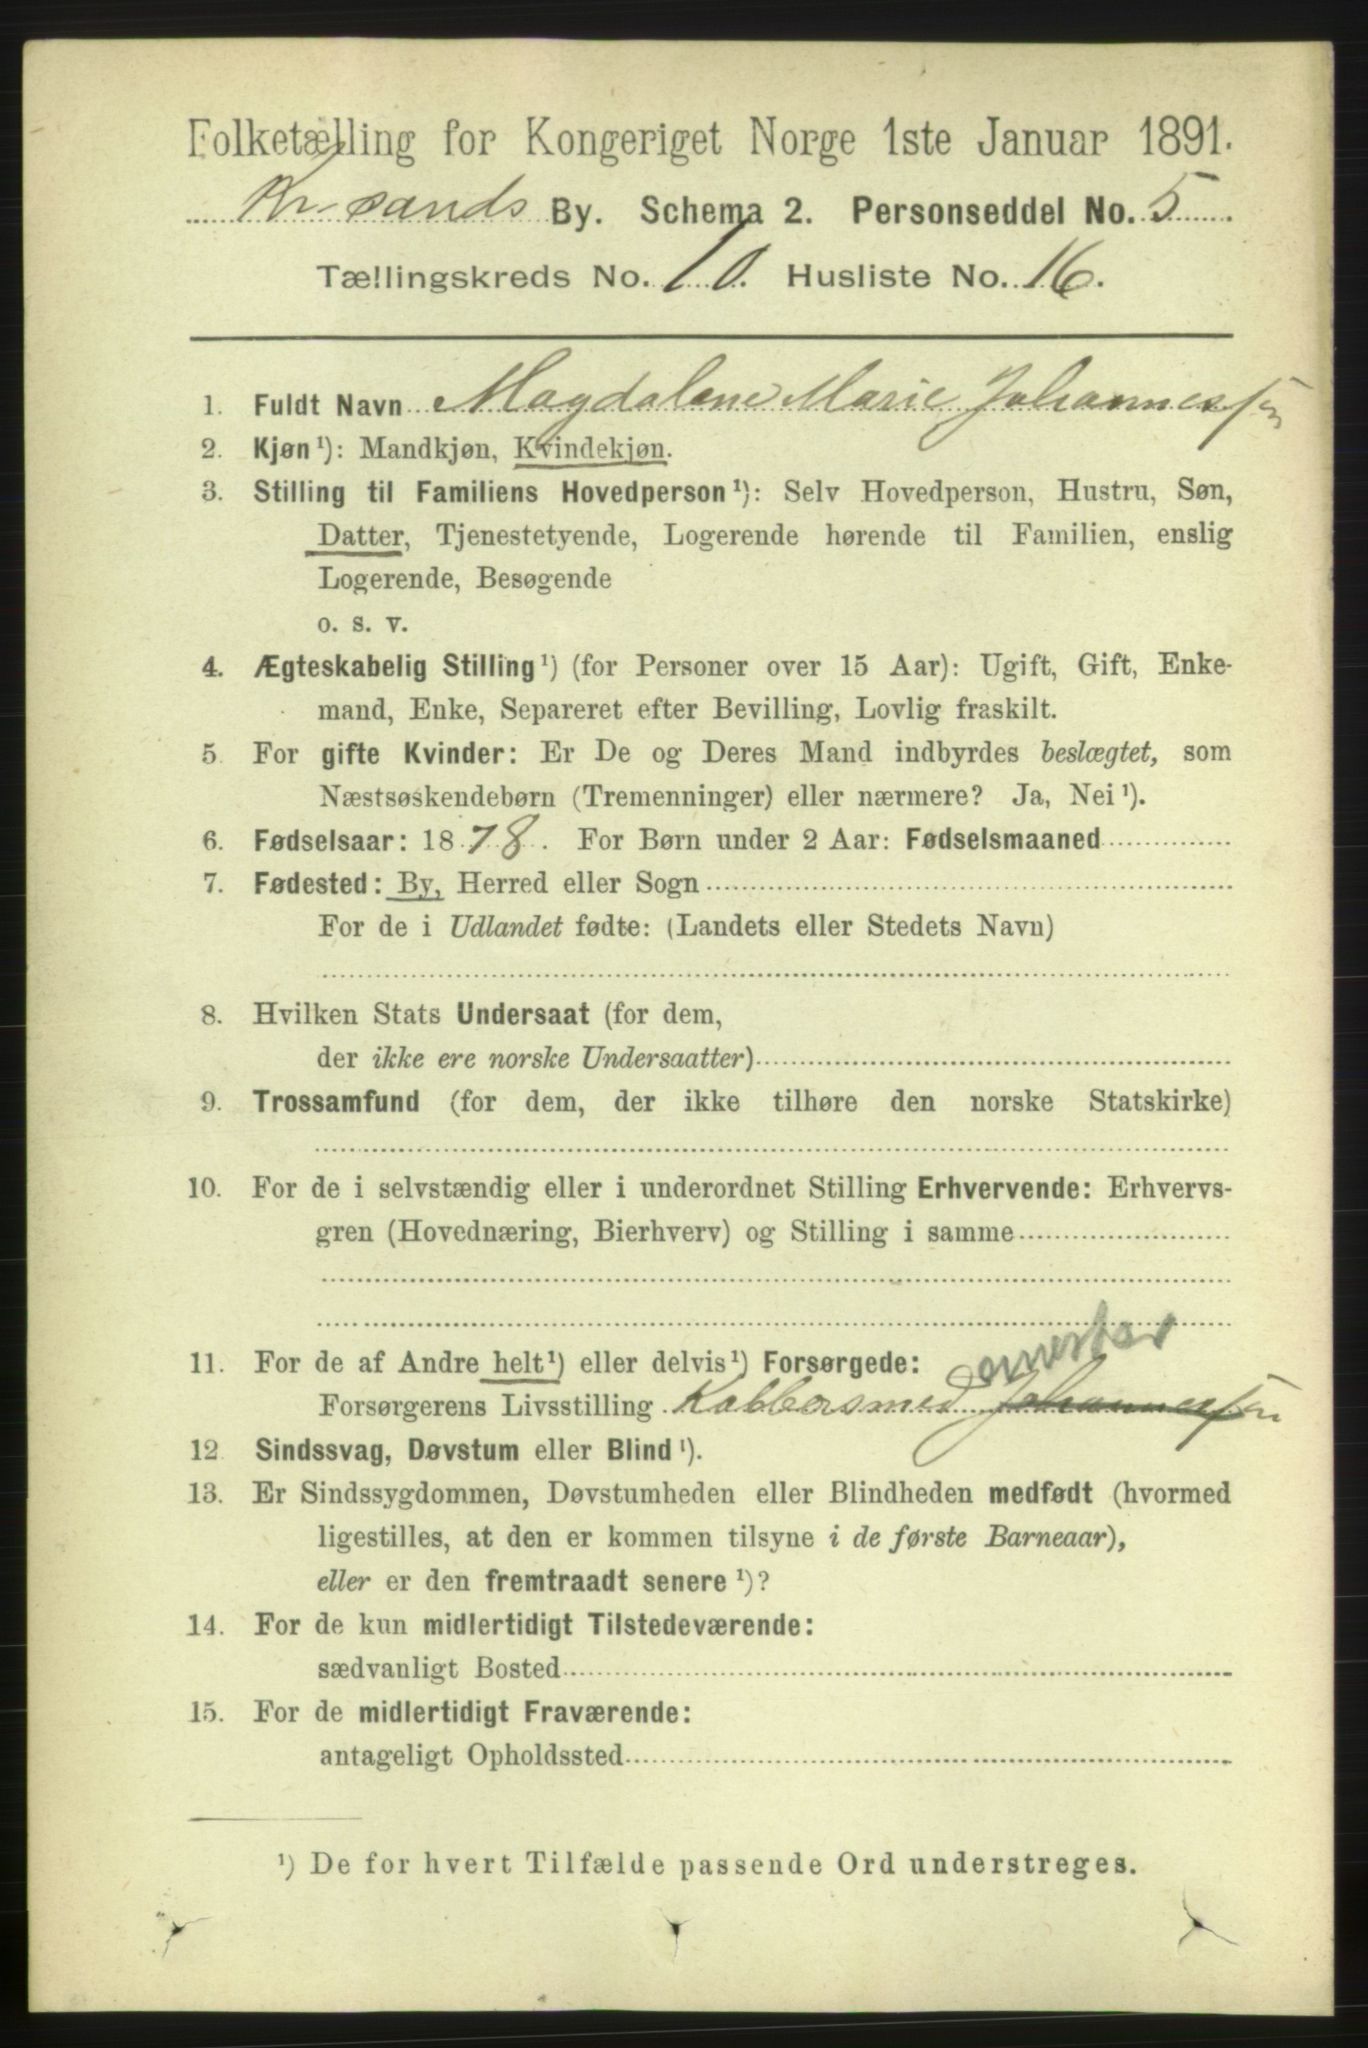 Folketælling for Kongeriget Norge 1ste Januar 1891.
Kr.sands By. Schema 2. Personseddel No. 5
Tællingskreds No. 10. Husliste No. 16.
1. Fuldt Navn Magdalene Marie Johannessen
2. Kjøn¹): Mandkjøn, Kvindekjøn.
3. Stilling til Familiens Hovedperson¹): Selv Hovedperson, Hustru, Søn,
Datter, Tjenestetyende, Logerende hørende til Familien, enslig
Logerende, Besøgende
o. s. v.
4. Ægteskabelig Stilling¹) (for Personer over 15 Aar): Ugift, Gift, Enke-
mand, Enke, Separeret efter Bevilling, Lovlig fraskilt.
5. For gifte Kvinder: Er De og Deres Mand indbyrdes beslægtet, som
Næstsøskendebørn (Tremenninger) eller nærmere? Ja, Nei¹).
6. Fødselsaar: 1878. For Børn under 2 Aar: Fødselsmaaned
7. Fødested: By, Herred eller Sogn
For de i Udlandet fødte: (Landets eller Stedets Navn)
8. Hvilken Stats Undersaat (for dem,
der ikke ere norske Undersaatter)
9. Trossamfund (for dem, der ikke tilhøre den norske Statskirke)
10. For de i selvstændig eller i underordnet Stilling Erhvervende: Erhvervs-
gren (Hovednæring, Bierhverv) og Stilling i samme
11. For de af Andre helt¹) eller delvis¹) Forsørgede:
Forsørgerens Livsstilling Kobbersmed Johannessen
12 Sindssvag, Døvstum eller Blind¹).
13. Er Sindssygdommen, Døvstumheden eller Blindheden medfødt (hvormed
ligestilles, at den er kommen tilsyne i de første Barneaar),
eller er den fremtraadt senere¹)?
14. For de kun midlertidigt Tilstedeværende:
sædvanligt Bosted
15. For de midlertidigt Fraværende:
antageligt Opholdssted
¹) De for hvert Tilfælde passende Ord understreges.